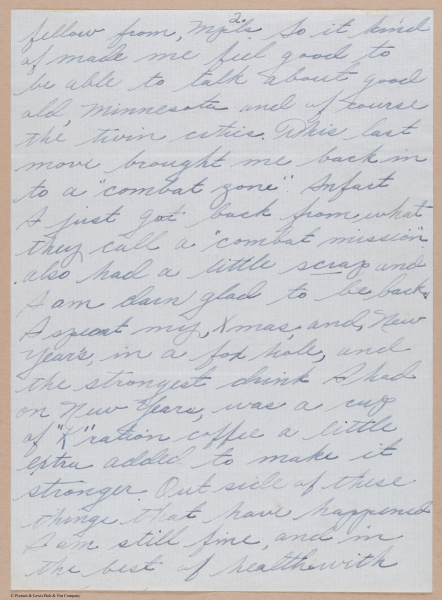 2.
fellow from, Mpls so it kind
of made me feel good to
be able to talk about good
old, Minnesota and of course
the twin cities. This last
move brought me back in
to a "combat zone". Infact
I just got back from what
they call a "combat mission"
also had a little scrap and
I am darn glad to be back.
I speant my, Xmas, and, New
Years, in a fox hole, and
the strongest drink I had
on New Years, was a cup
of "K" ration coffee a little
extra added to make it
stronger. Out side of these
things that have happened
I am still fine, and in
the best of health with
© Pieces & Lewis Bolt & Nut Company